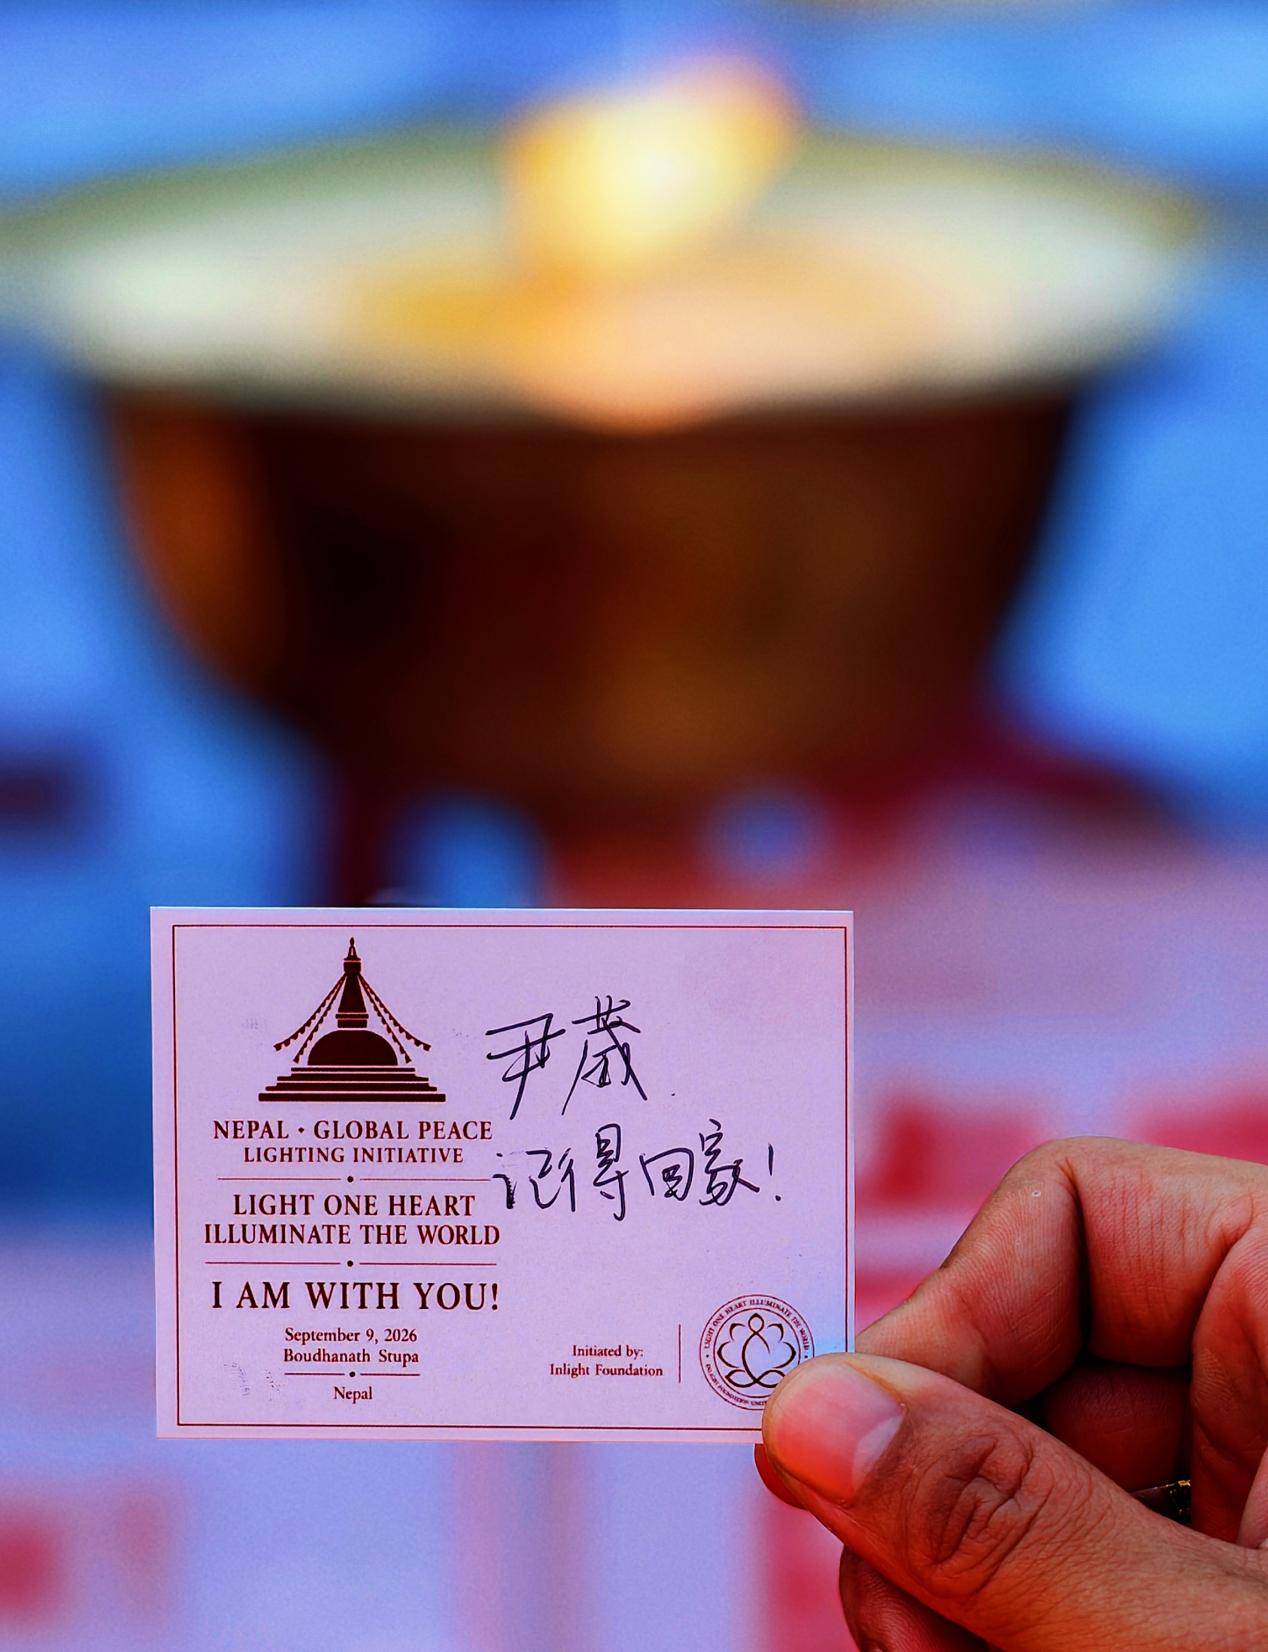 NEPAL • GLOBAL PEACE
LIGHTING INITIATIVE
LIGHT ONE HEART
ILLUMINATE THE WORLD
I AM WITH YOU!
September 9, 2026
Boudhanath Stupa
Nepal
尹葳
记得回家!
Initiated by:
Inlight Foundation
LIGHT ONE HEART ILLUMINATE THE WORLD
INLIGHT FOUNDATION